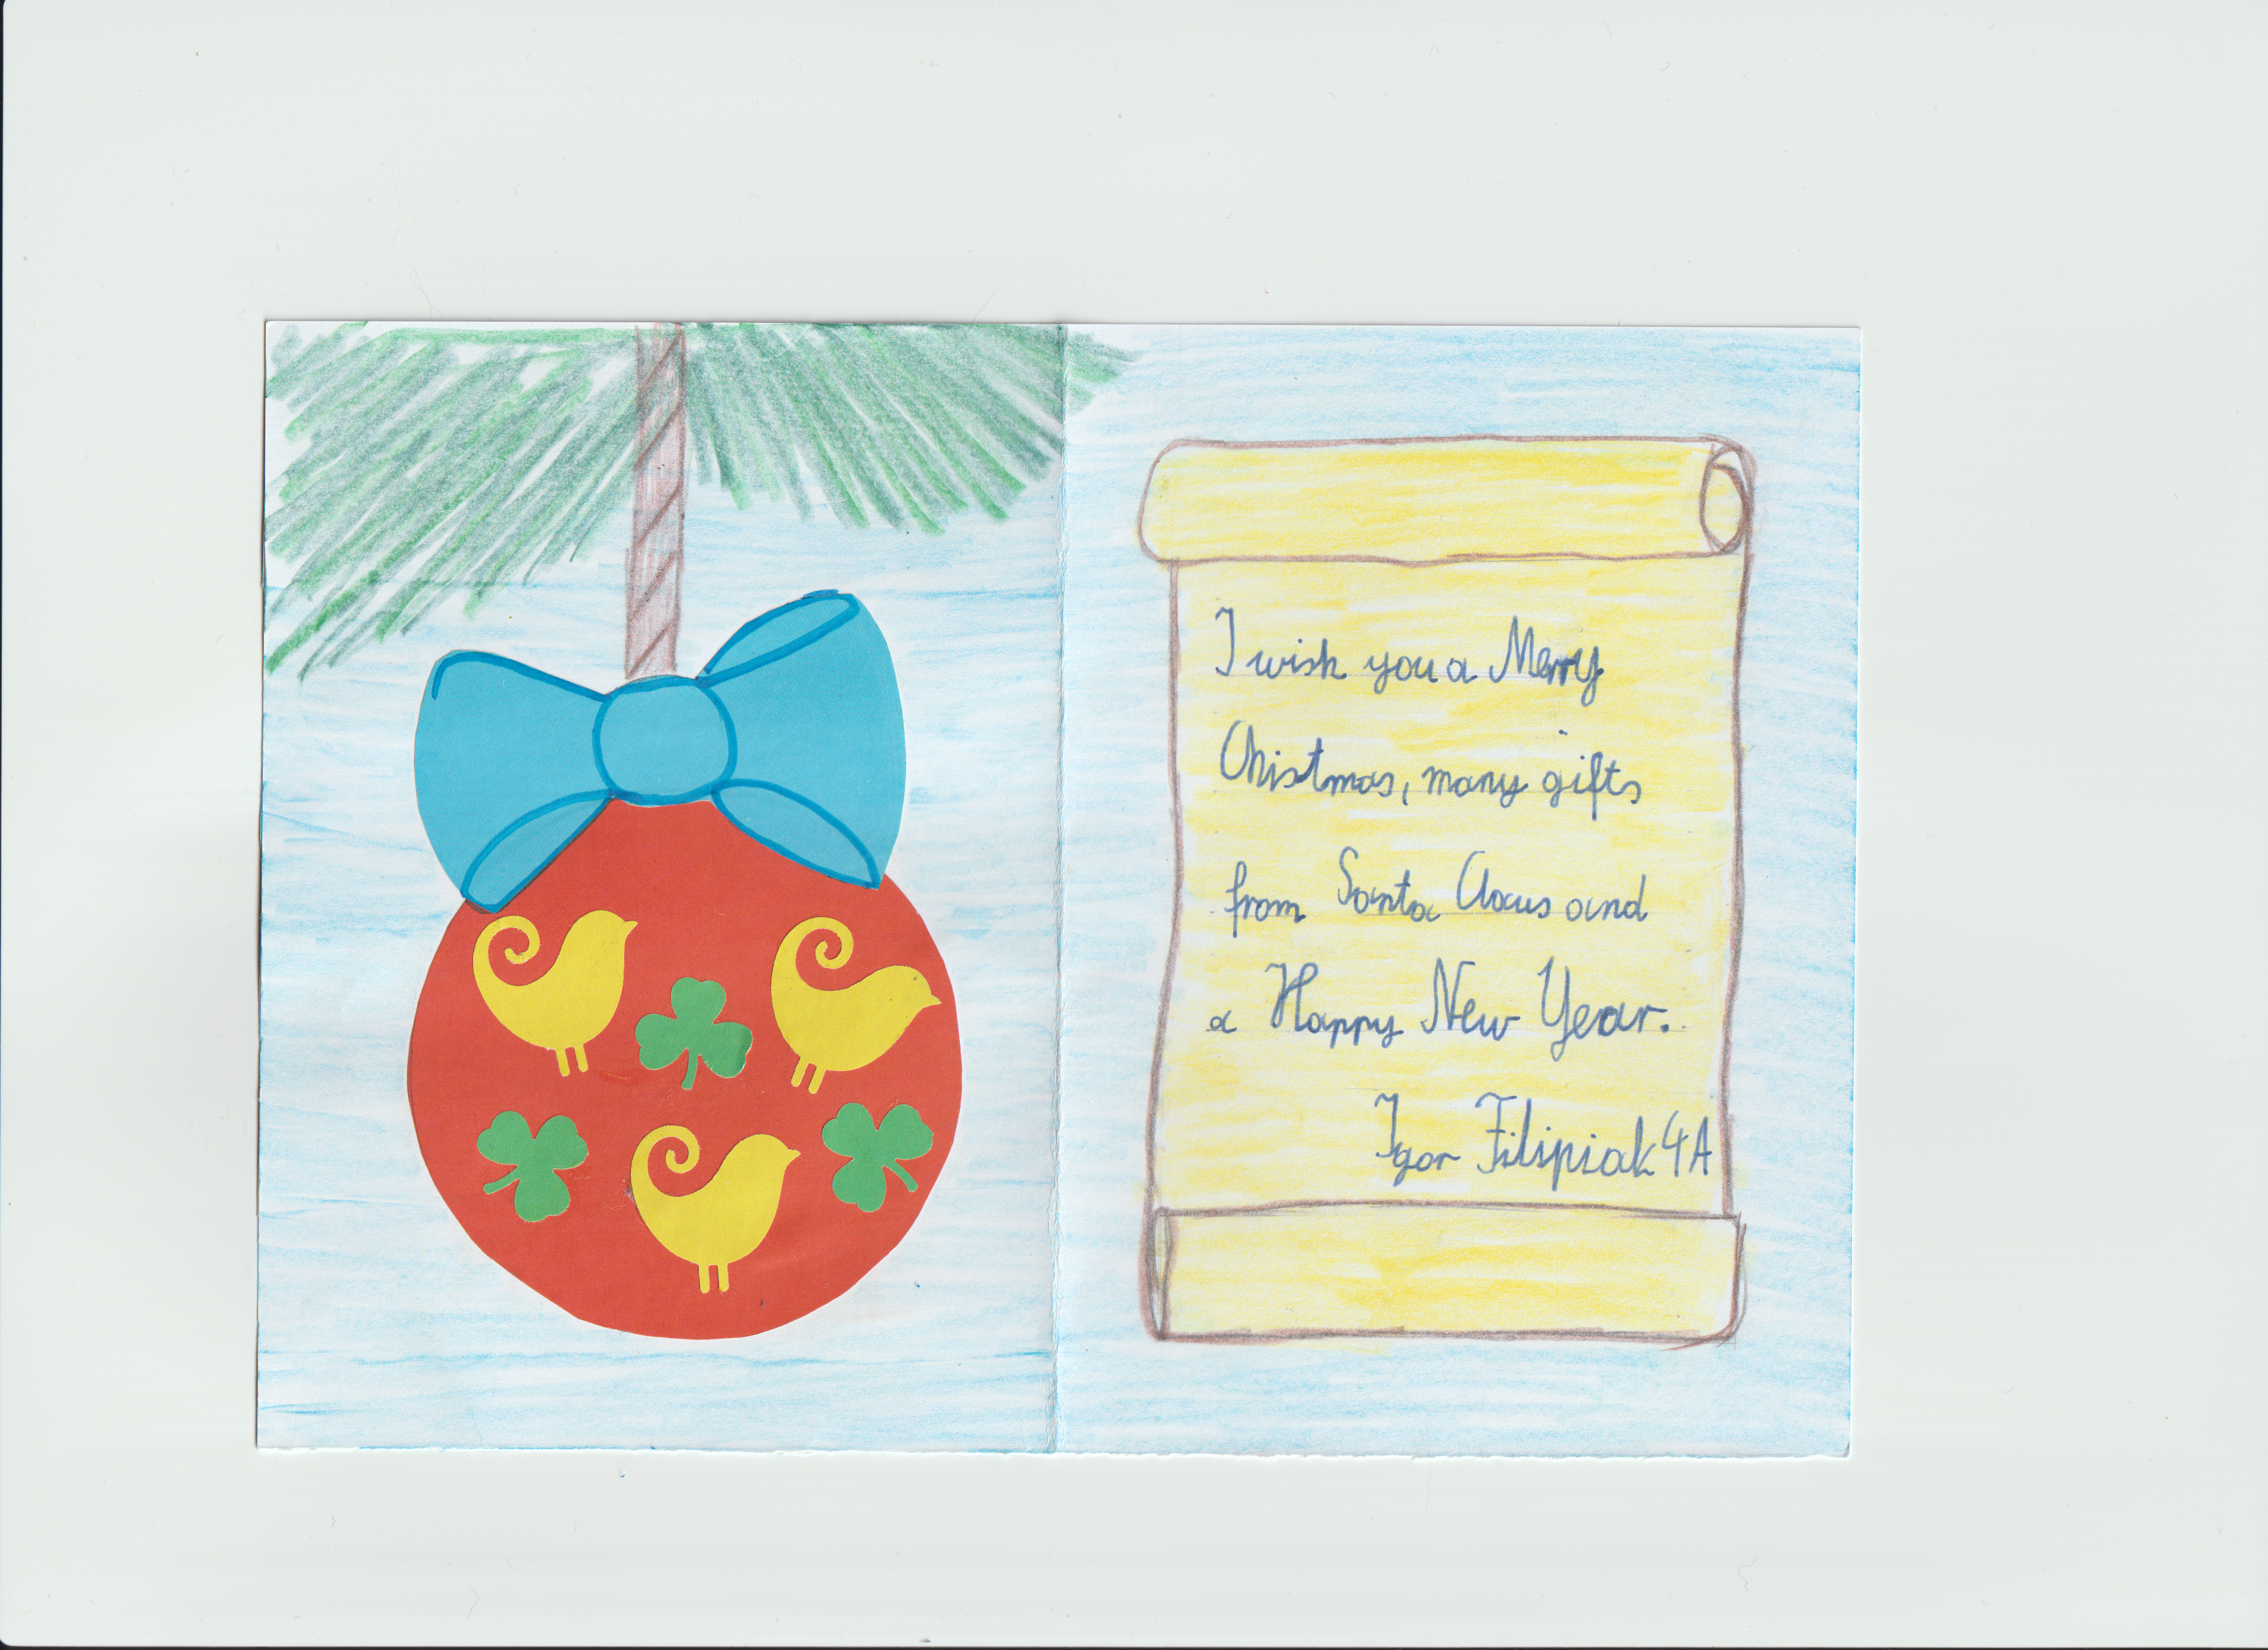 I wish you a Merry
Chistmas, many gifts
from Santa Claus and
a Happy New Year.
Igor Filipiak 4A